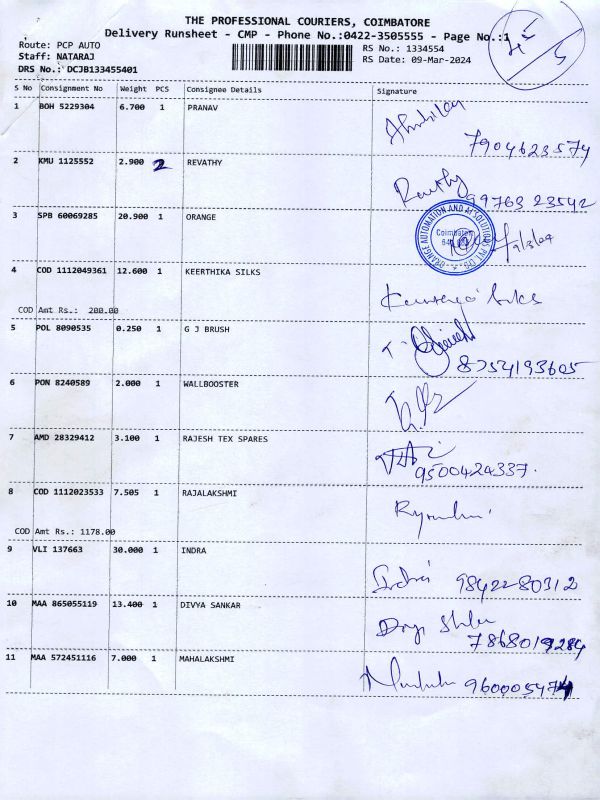 THE PROFESSIONAL COURIERS, COIMBATORE
Delivery Runsheet - CMP - Phone No.:0422-3505555 - Page No.:1
Route: PCP AUTO
RS No.: 1334554
Staff: NATARAJ
RS Date: 09-Mar-2024
DRS No.: DCJB133455401
S No Consignment No Weight PCS Consignee Details Signature
1 BOH 5229304 6.700 1 PRANAV
7904623574
2 KMU 1125552 2.900 2 REVATHY
Revathy
99763 23542
3 SPB 60069285 20.900 1 ORANGE
ORANGE AUTOMATION AND AI SOLUTIONS PVT LTD
Coimbatore
9/3/24
4 COD 1112049361 12.600 1 KEERTHIKA SILKS
COD Amt Rs.: 200.00
5 POL 8090535 0.250 1 G J BRUSH
8754193605
6 PON 8240589 2.000 1 WALLBOOSTER
7 AMD 28329412 3.100 1 RAJESH TEX SPARES
9500424337.
8 COD 1112023533 7.505 1 RAJALAKSHMI
COD Amt Rs.: 1178.00
9 VLI 137663 30.000 1 INDRA
Indra 9842280312
10 MAA 865055119 13.400 1 DIVYA SANKAR
7868019284
11 MAA 572451116 7.000 1 MAHALAKSHMI
9600005474